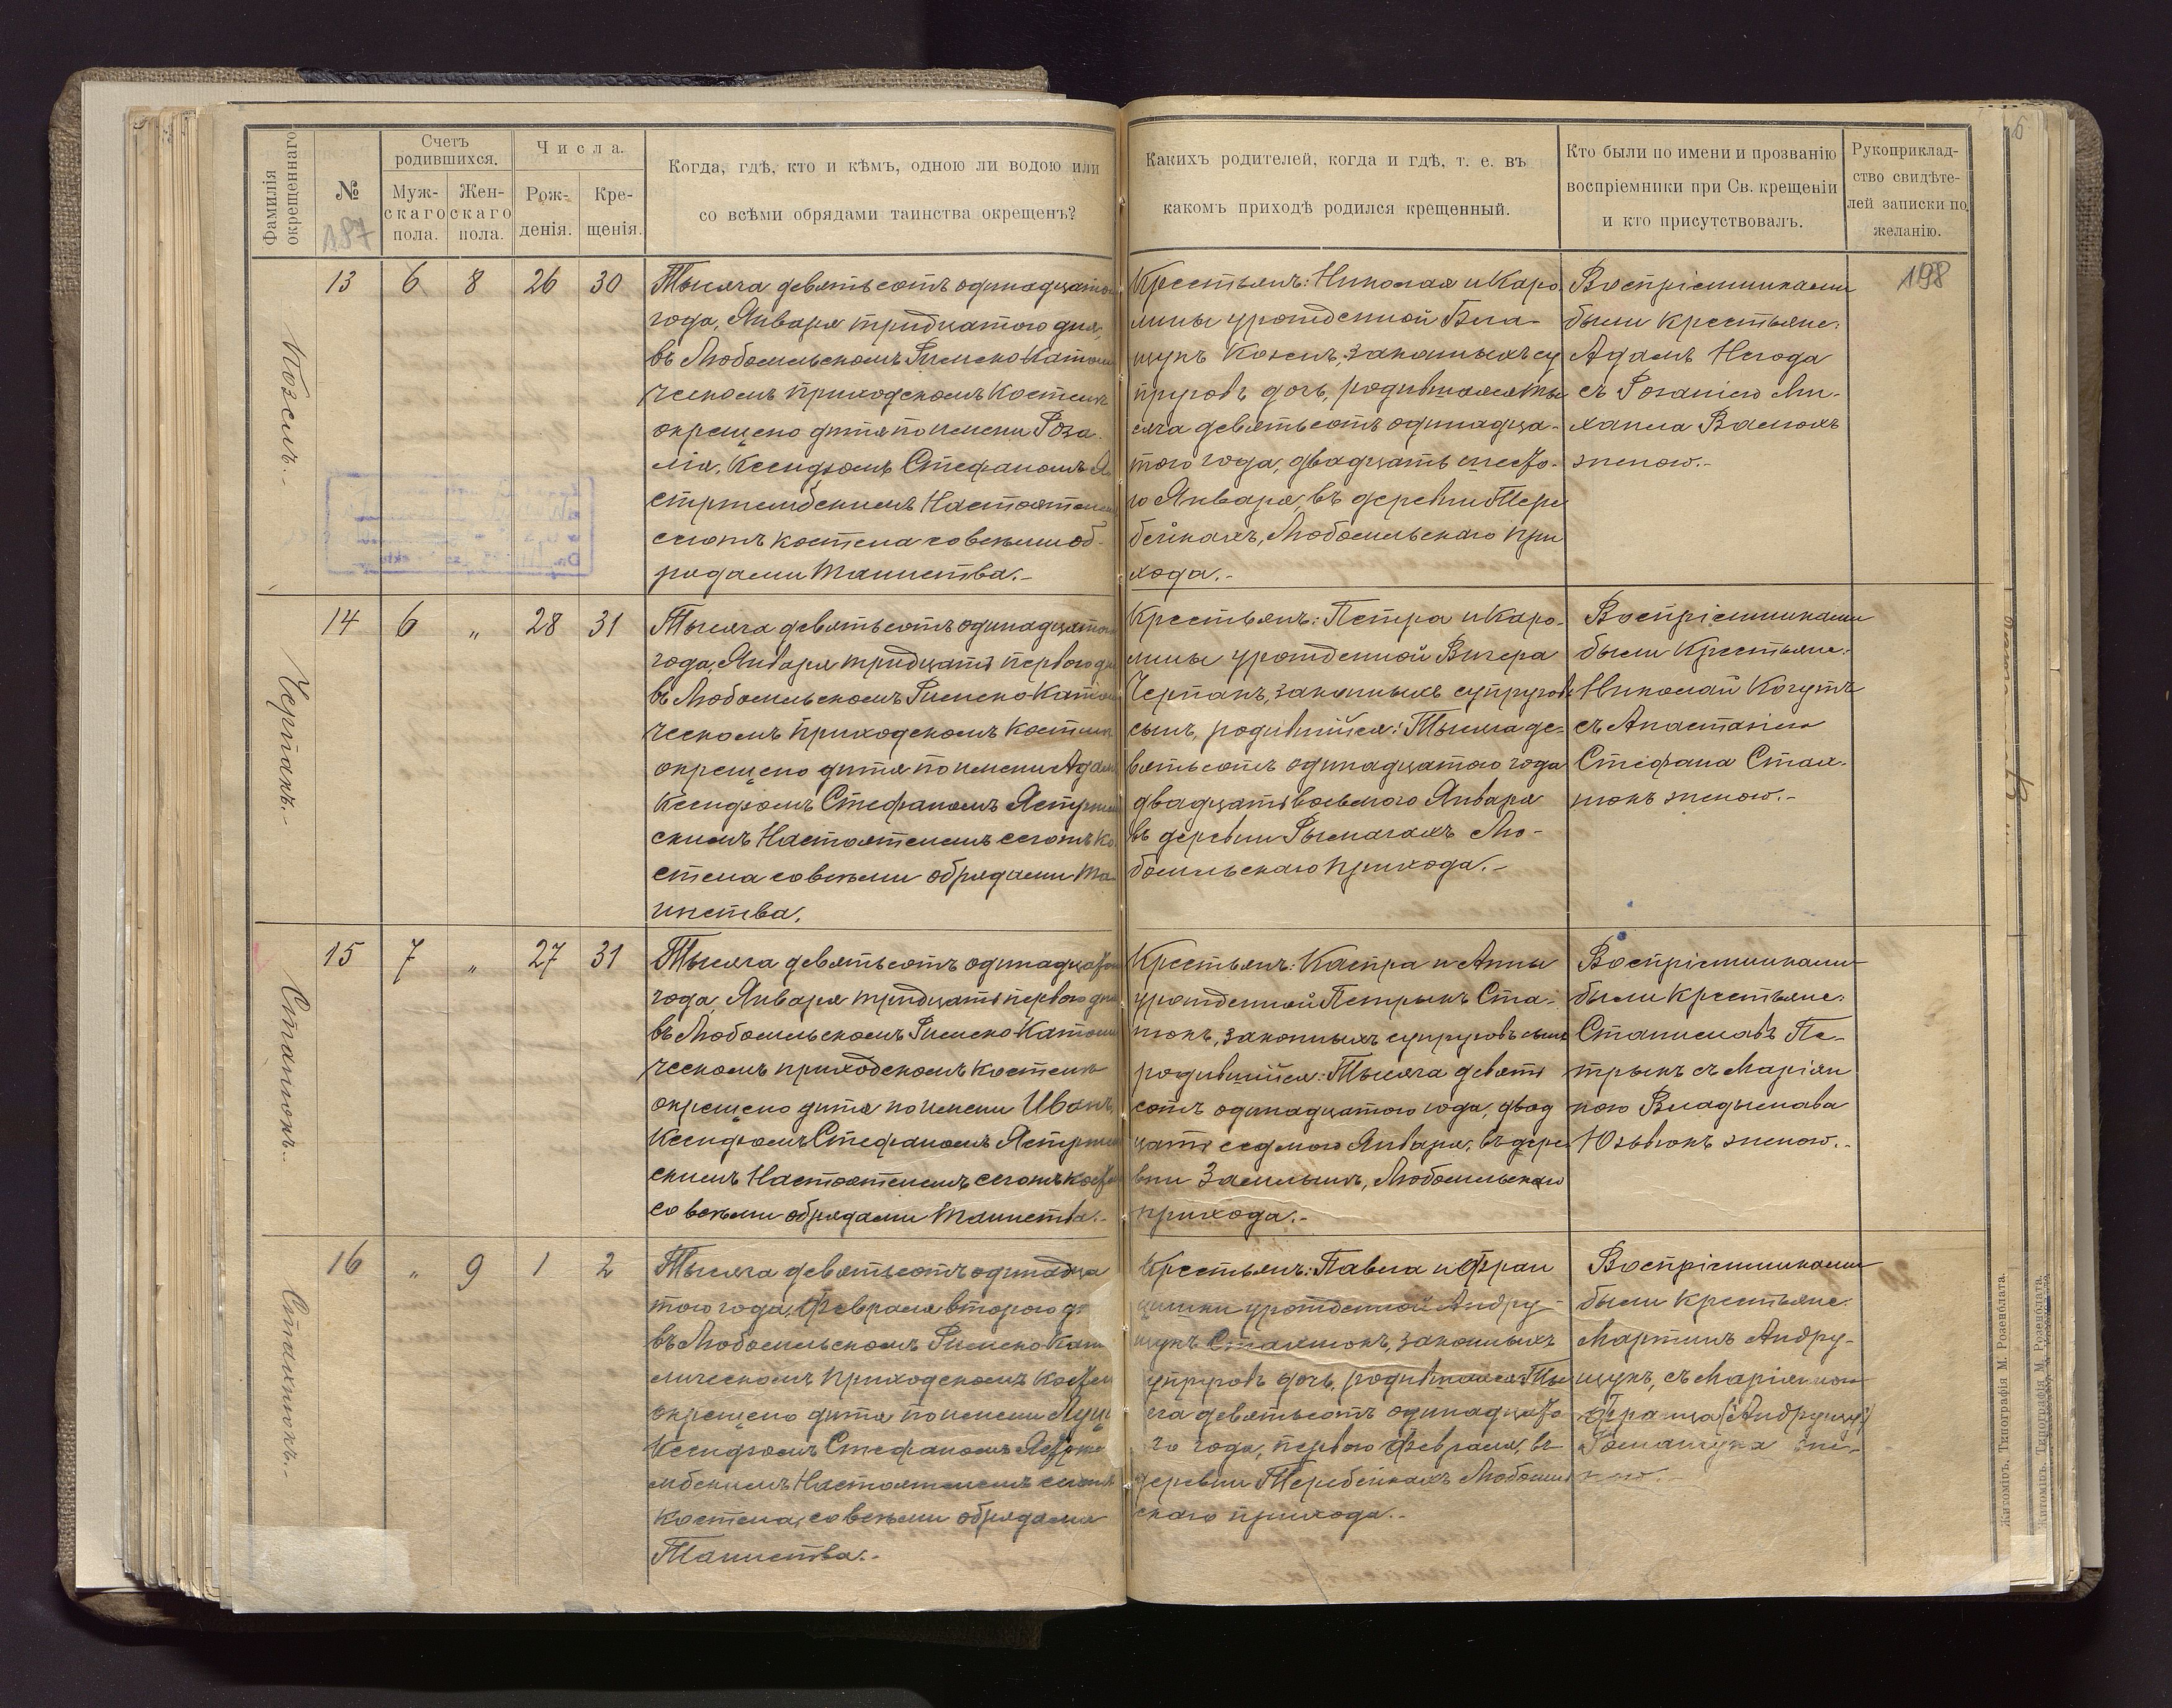 Фамилія окрещеннаго
№
187
Счетъ родившихся.
Муж-
скаго
пола.
Жен-
скаго
пола.
Числа.
Рож-
денія.
Кре-
щенія.
Когда, гдѣ, кто и кѣмъ, одною ли водою или
со всѣми обрядами таинства окрещенъ?
Какихъ родителей, когда и гдѣ, т. е. въ
какомъ приходѣ родился крещенный.
Кто были по имени и прозванію
воспріемники при Св. крещеніи
и кто присутствовалъ.
Рукоприклад-
ство свидѣте-
лей записки по
желанію.
6
198
Козелъ.-
13 6 8 26 30
Тысяча девятьсотъ одинадцато
года, Января тридцатого дня,
въ Любомльскомъ Римско Катол
ческомъ приходскомъ Костелѣ
окрещено дитя по имени Роза-
лія, Ксендзомъ Стефаномъ Я
стржембскимъ Настоятелем
сегожъ костела со всѣми об-
рядами Таинства.-
Крестьянъ: Николая и Каро
лины урожденной Бла-
щукъ Козелъ, законныхъ су
пруговъ дочь, родившаяся: Ты
сяча девятьсотъ одинадца-
того года, двадцать шесто-
го Января, въ деревни Тере
бейкахъ, Любомльскаго при
хода.-
Воспріемниками
были крестьяне:
Адамъ Негода
съ Розаліею Ми-
хаила Васюкъ
женою.-
Черпакъ.-
14 6 „ 28 31
Тысяча девятьсотъ одинадцато
года, Января тридцать первого д
въ Любомльскомъ Римско Катол
ческомъ приходскомъ костелѣ
окрещено дитя по имени Адам
Ксендзомъ Стефаномъ Ястржем
скимъ Настоятелемъ сегожъ ко
стела со всѣми обрядами Та-
инства.
Крестьянъ: Петра и Каро-
лины урожденной Вигера
Черпакъ, законныхъ супруговъ
сынъ, родившійся: Тысяча де-
вятьсотъ одинадцатого года
двадцать восьмого Января
въ деревни Рымачахъ Лю-
бомльскаго прихода.-
Воспріемниками
были Крестьяне:
Николай Когутъ
съ Анастасіею
Стефана Стах-
нюкъ женою.-
Стапюкъ.-
15 7 „ 27 31
Тысяча девятьсотъ одинадцатого
года, Января тридцать первого дня
въ Любомльскомъ Римско Катол
ческомъ приходскомъ костелѣ
окрещено дитя по имени Иванъ,
Ксендзомъ Стефаномъ Ястржем
скимъ Настоятелемъ сегожъ косте
со всѣми обрядами Таинства.-
Крестьянъ: Каспра и Анны
урожденной Петрыкъ Ста-
пюкъ, законныхъ супруговъ сынъ
родившійся: Тысяча девять
сотъ одинадцатого года, двад
цать седмого Января, въ дере
вни Замлынѣ, Любомльскаго
прихода.-
Воспріемниками
были крестьяне:
Станиславъ Пе-
трыкъ съ Маріян
ною Владыслава
Юзьвюкъ женою.-
Стахнюкъ.-
16 „ 9 1 2
Тысяча девятьсотъ одинадца
того года, Февраля второго д
въ Любомльскомъ Римско Като
лическомъ приходскомъ косте
окрещено дитя по имени
Ксендзомъ Стефаномъ Ястрже
мбскимъ Настоятелемъ сегожъ
костела, со всѣми обрядами
Таинства.-
Крестьянъ: Павла и Фран
цишки урожденной Андру-
щукъ Стахнюкъ, законныхъ
упруговъ дочь, родившаяся: Ты
яча девятьсотъ одинадцато
го года, первого Февраля, въ
деревни Теребейкахъ Любомль
скаго прихода.-
Воспріемниками
были крестьяне:
Мартинъ Андру-
щукъ, съ Маріянною
Франца (Андрущук)
Романчука же-
ною.-
Житоміръ, Типографія М. Розенблата.
Житоміръ, Типографія М. Розенблата.